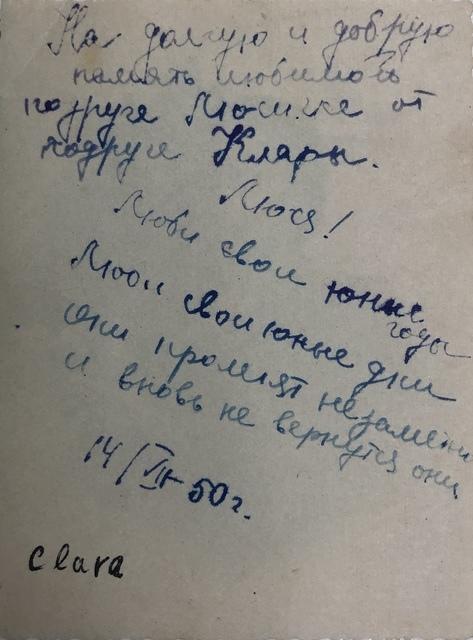 На долгую и добрую
память любимой
подруге Люсичке от
подруги Клары.
Люся!
Люби свои юные
годы
Люби свои юные дни
они промчат незаметно
и вновь не вернутся они
14/VII-50г.
Clara